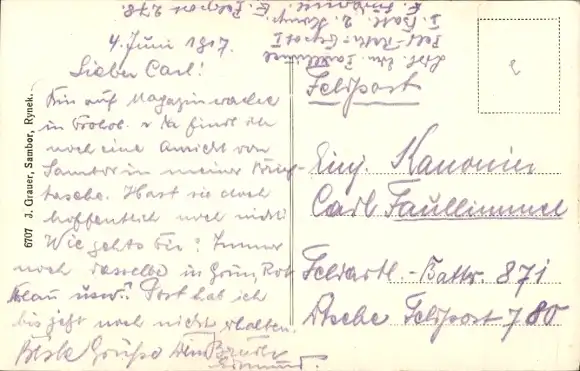 4. Juni 1917.
Lieber Carl!
Bin auf Magazinwache
in Drohob. u. da find ich
noch eine Ansicht von
Sambor in meiner Brief-
tasche. Hast sie doch
hoffentlich noch nicht!
Wie gehts Dir? Immer
noch dasselbe in Grün, Rot
Blau usw.? Post hab ich
bis jetzt noch nicht erhalten.
Beste Grüße Dein Bruder
Feldpost
Einj. Kanonier
Carl Faullimmel
Feldartl.-Battr. 871
Dtsche Feldpost 780
Feldpost 278.
6707 J. Grauer, Sambor, Rynek.